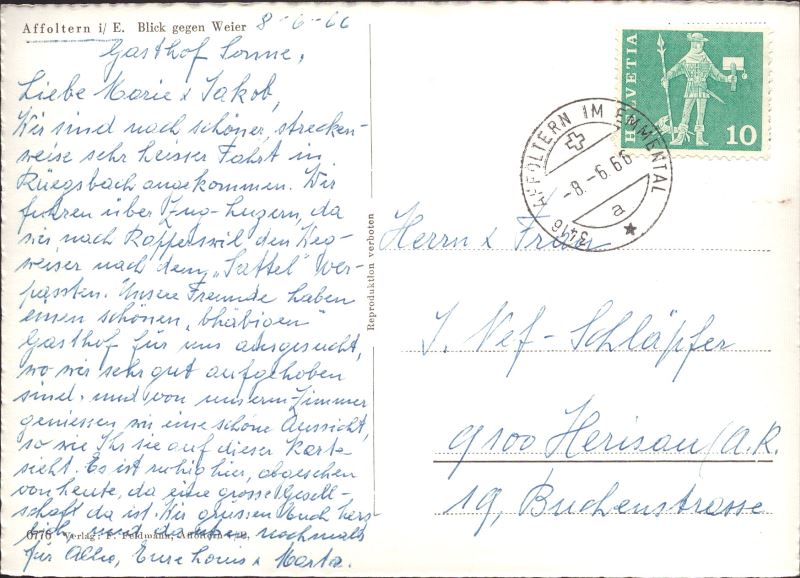 Affoltern i/E. Blick gegen Weier 8-6-66
Gasthof Sonne,
Liebe Marie & Jakob,
Wir sind nach schöner, strecken-
weise sehr heisser Fahrt in
Rüegsbach angekommen. Wir
fuhren über Zug-Luzern, da
wir nach Rapperswil den Weg-
weiser nach dem „Sattel" ver-
passten. Unsere Freunde haben
einen schönen, „bhäbigen"
Gasthof für uns ausgesucht,
wo wir sehr gut aufgehoben
sind. und von unserm Zimmer
geniessen wir eine schöne Aussicht,
so wie Ihr sie auf dieser Karte
sieht. Es ist ruhig hier, abgesehen
von heute, da eine grosse Gesell-
schaft da ist. Wir grüssen Euch herz-
lich, und danken nochmals
für Alles, Eure Louis & Marta.
6776 Verlag: F. Feldmann, Affoltern i/E.
Reproduktion verboten
HELVETIA
10
3416 AFFOLTERN IM EMMENTAL
-8.-6.66
a
Herrn & Frau
J. Nef-Schläpfer
9100 Herisau/A.R.
19, Buchenstrasse